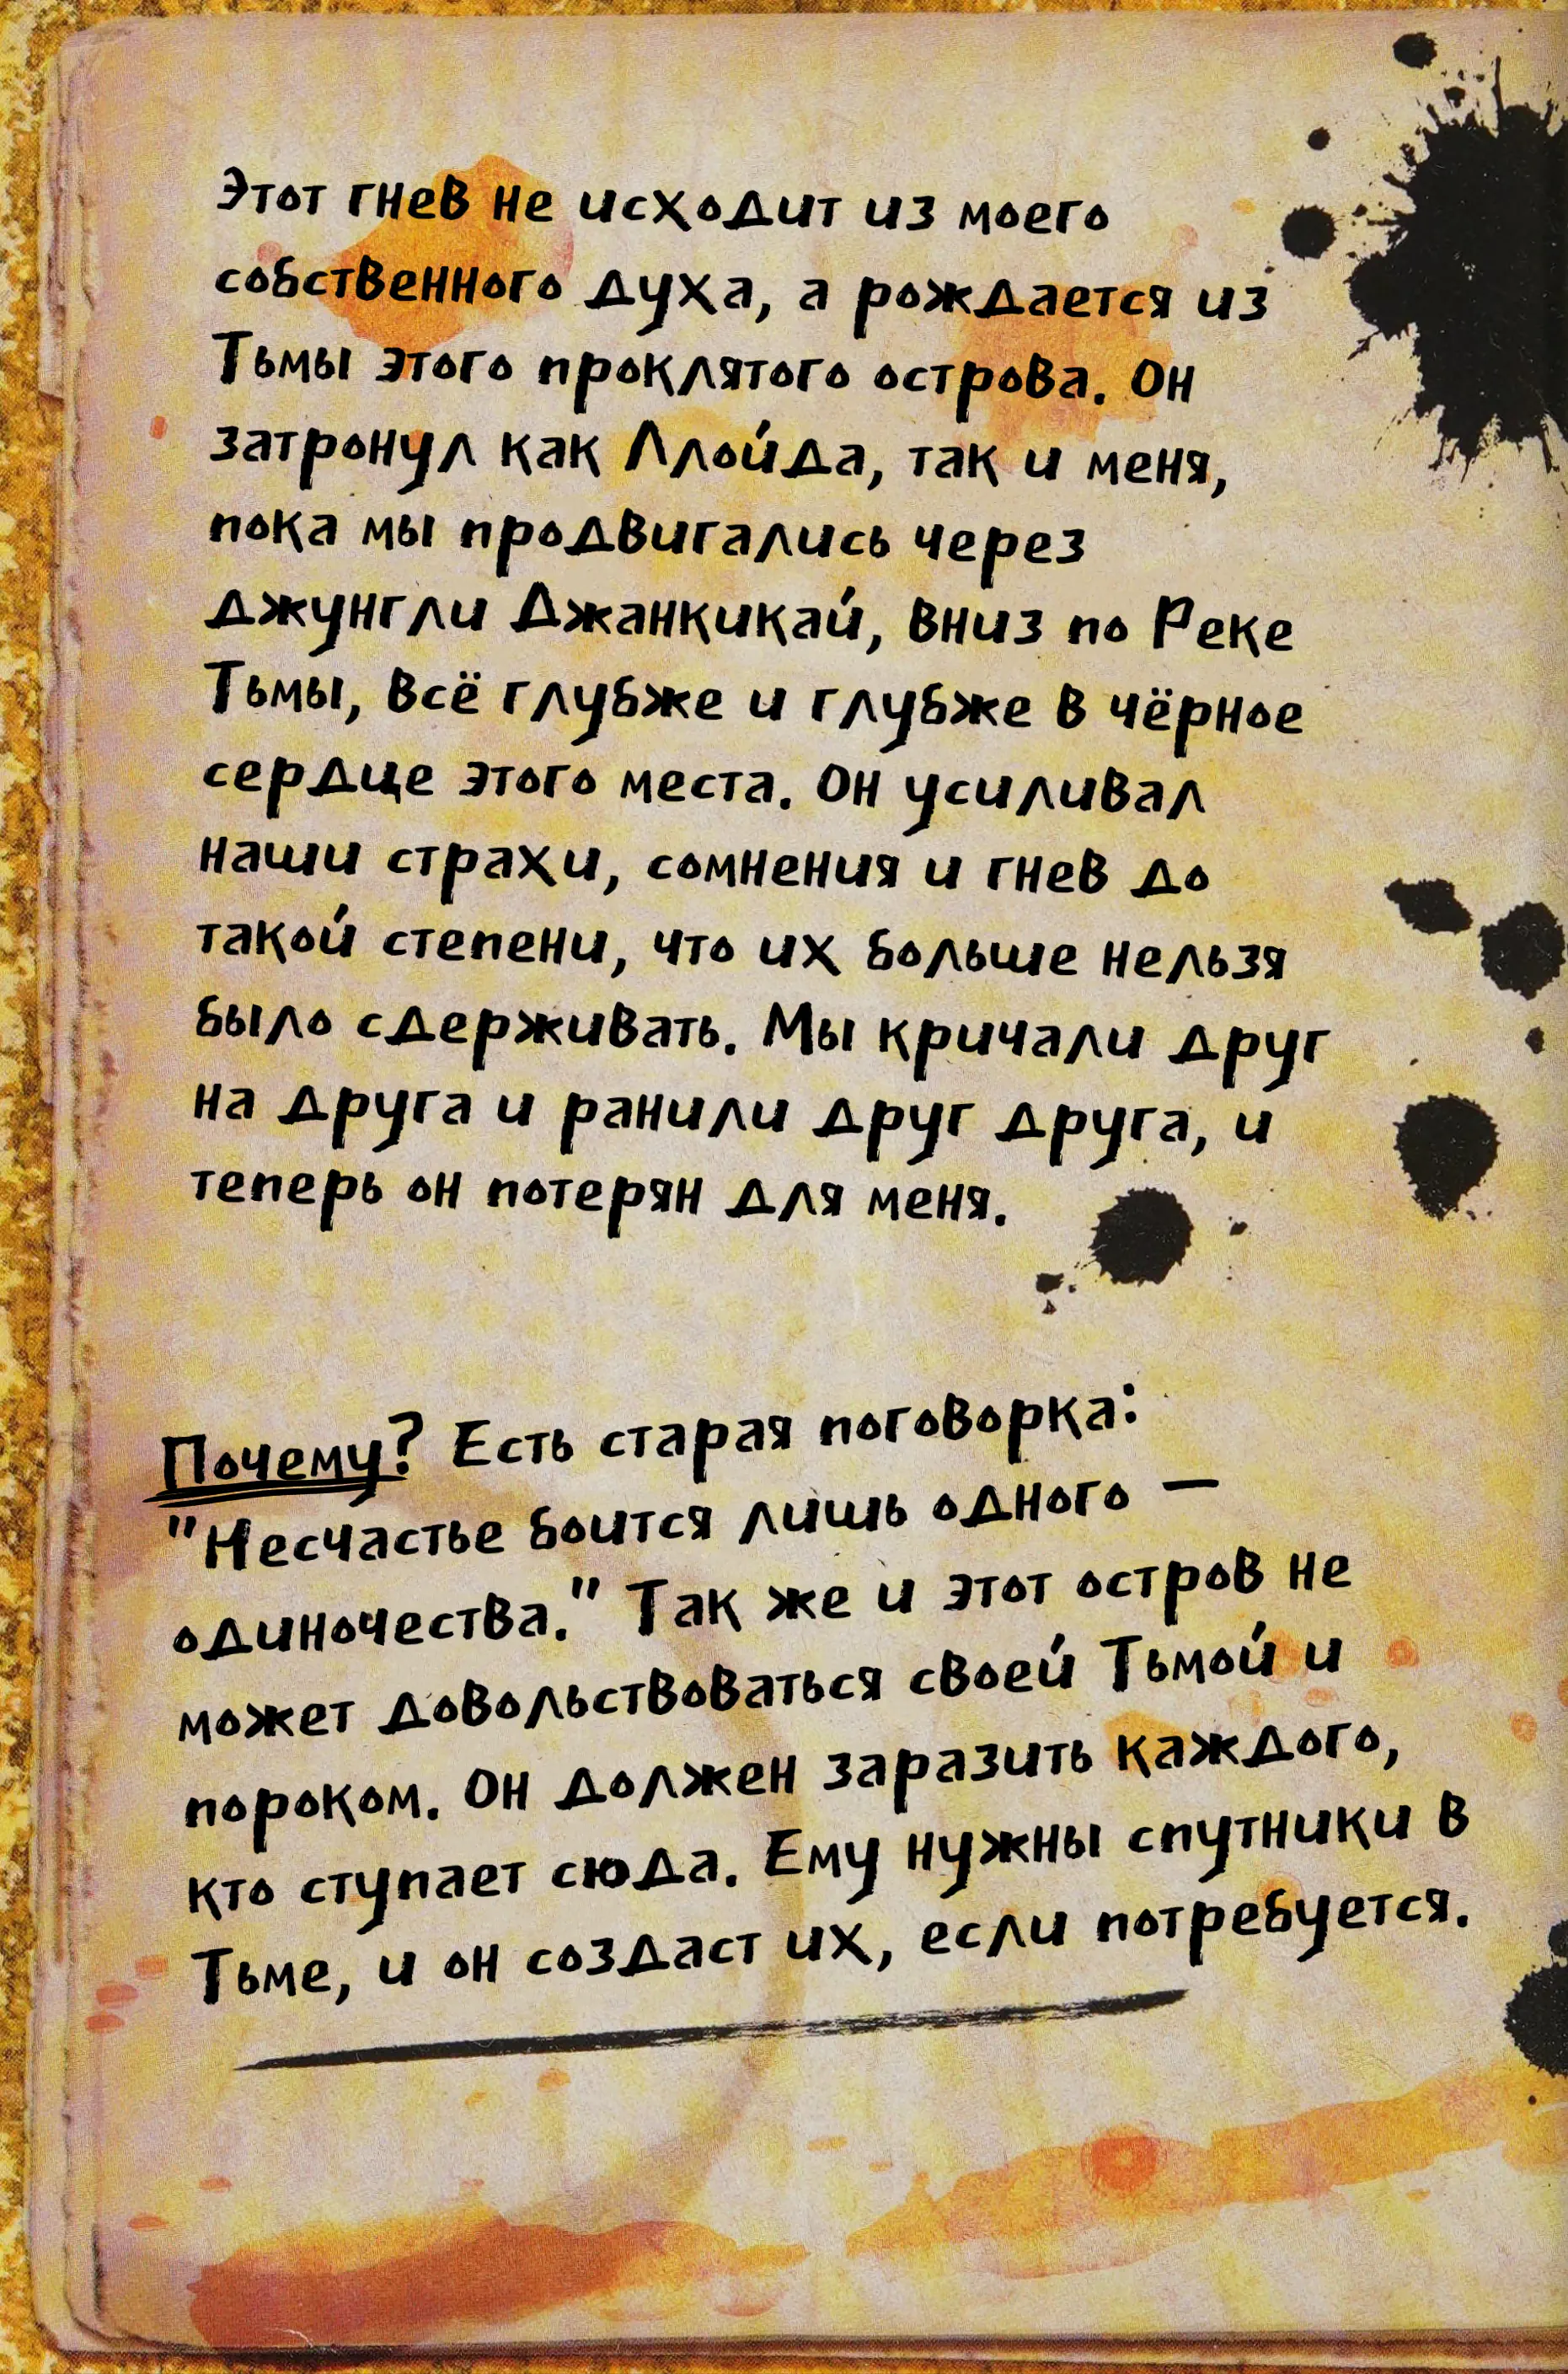 Этот гнев не исходит из моего
собственного духа, а рождается из
Тьмы этого проклятого острова. Он
затронул как Ллойда, так и меня,
пока мы продвигались через
джунгли Джанкикай, вниз по Реке
Тьмы, всё глубже и глубже в чёрное
сердце этого места. Он усиливал
наши страхи, сомнения и гнев до
такой степени, что их больше нельзя
было сдерживать. Мы кричали друг
на друга и ранили друг друга, и
теперь он потерян для меня.
Почему? Есть старая поговорка:
"Несчастье боится лишь одного —
одиночества." Так же и этот остров не
может довольствоваться своей Тьмой и
пороком. Он должен заразить каждого,
кто ступает сюда. Ему нужны спутники в
Тьме, и он создаст их, если потребуется.